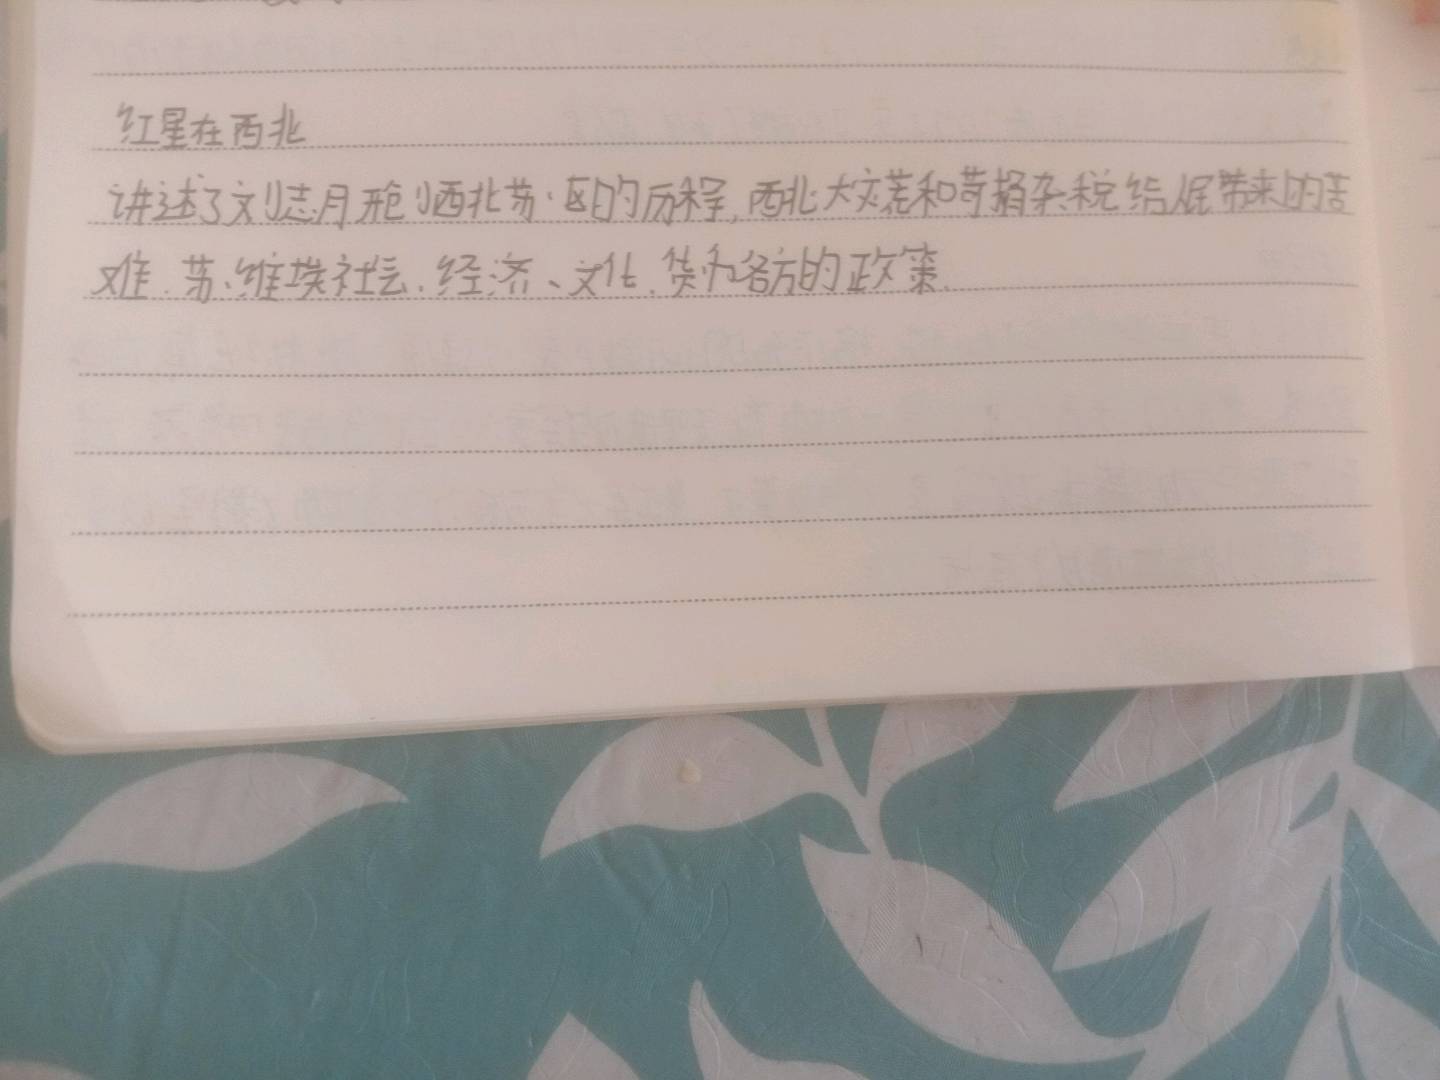 红星在西北
讲述了刘志丹创西北苏区的历程,西北大灾荒和苛捐杂税给人民带来的苦
难.苏维埃社会.经济、文化.货币各方的政策.